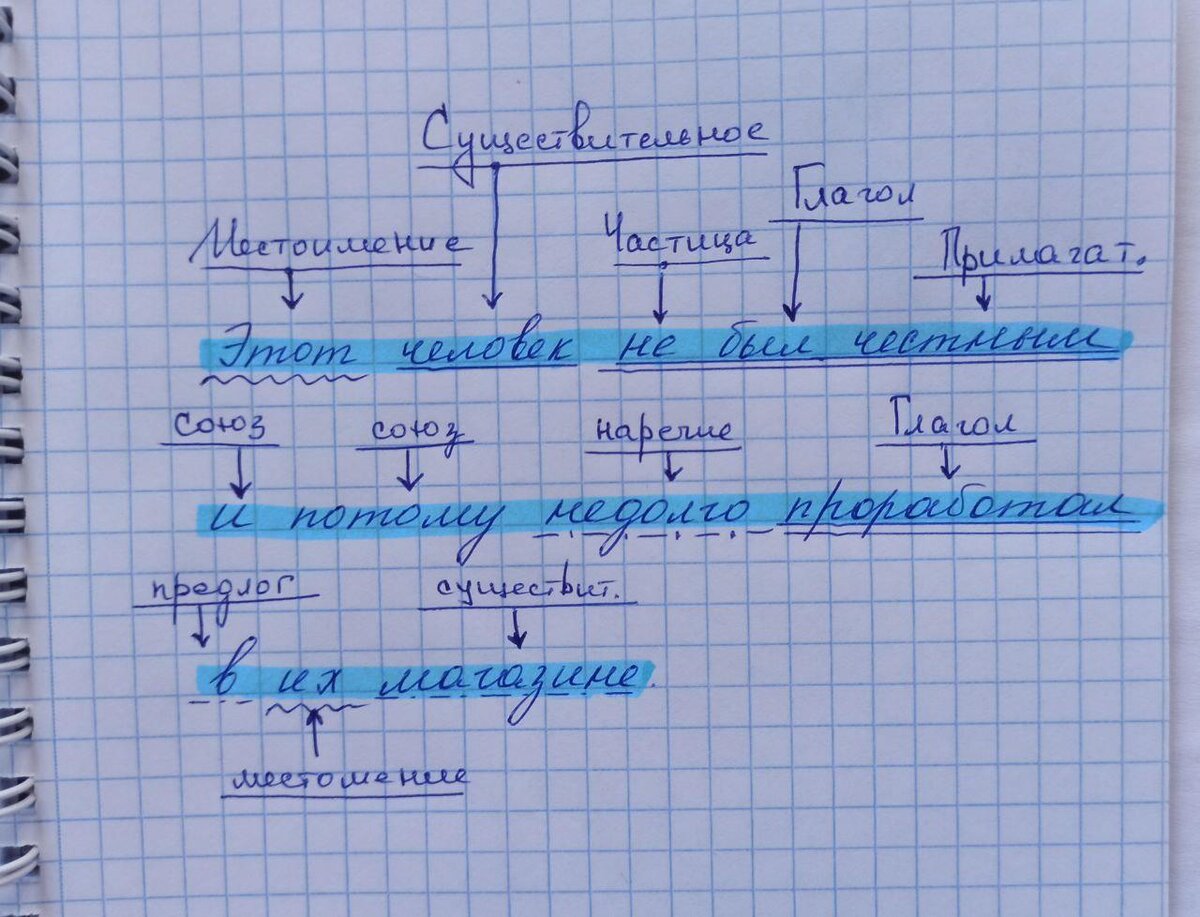 Существительное
Глагол
Местоимение Частица Прилагат.
Этот человек не был честным
союз союз наречие Глагол
и потому недолго проработал
предлог существит.
в их магазине.
местомение